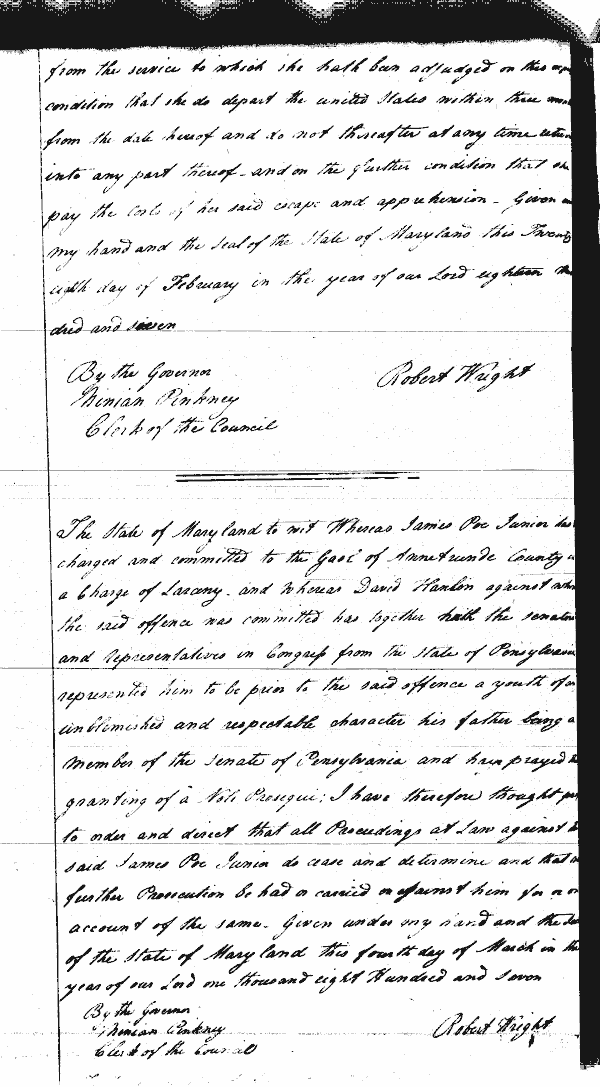 from the service to which she hath been adjudged on this
condition that she do depart the united States within three
from the date hereof and do not thereafter at any time
into any part thereof - and on the further condition that she
pay the Costs of her said escape and apprehension - Given
my hand and the seal of the State of Maryland this Twenty
eighth day of February in the year of our Lord eighteen
dred and seven
By the Governor
Ninian Pinkney
Clerk of the Council
Robert Wright
The State of Maryland to wit Whereas James Poe Junior has
charged and committed to the Gaol of Annetrunde County
a Charge of Larceny - and Whereas David Hanlon against
the said offence was committed has together hath the senators
and representatives in Congress from the State of Pensylvania
represented him to be prior to the said offence a youth of
unblemished and respectable character his father being a
member of the senate of Pensylvania and have prayed
granting of a Noli Prosequi; I have therefore thought
to order and direct that all Proceedings at Law against
said James Poe Junior do cease and determine and that
further Prosecution be had or carried on against him for or on
account of the same. Given under my hand and the
of the State of Maryland this fourth day of March in the
year of our Lord one thousand eight Hundred and seven
By the Governor
Ninian Pinkney
Clerk of the Council
Robert Wright